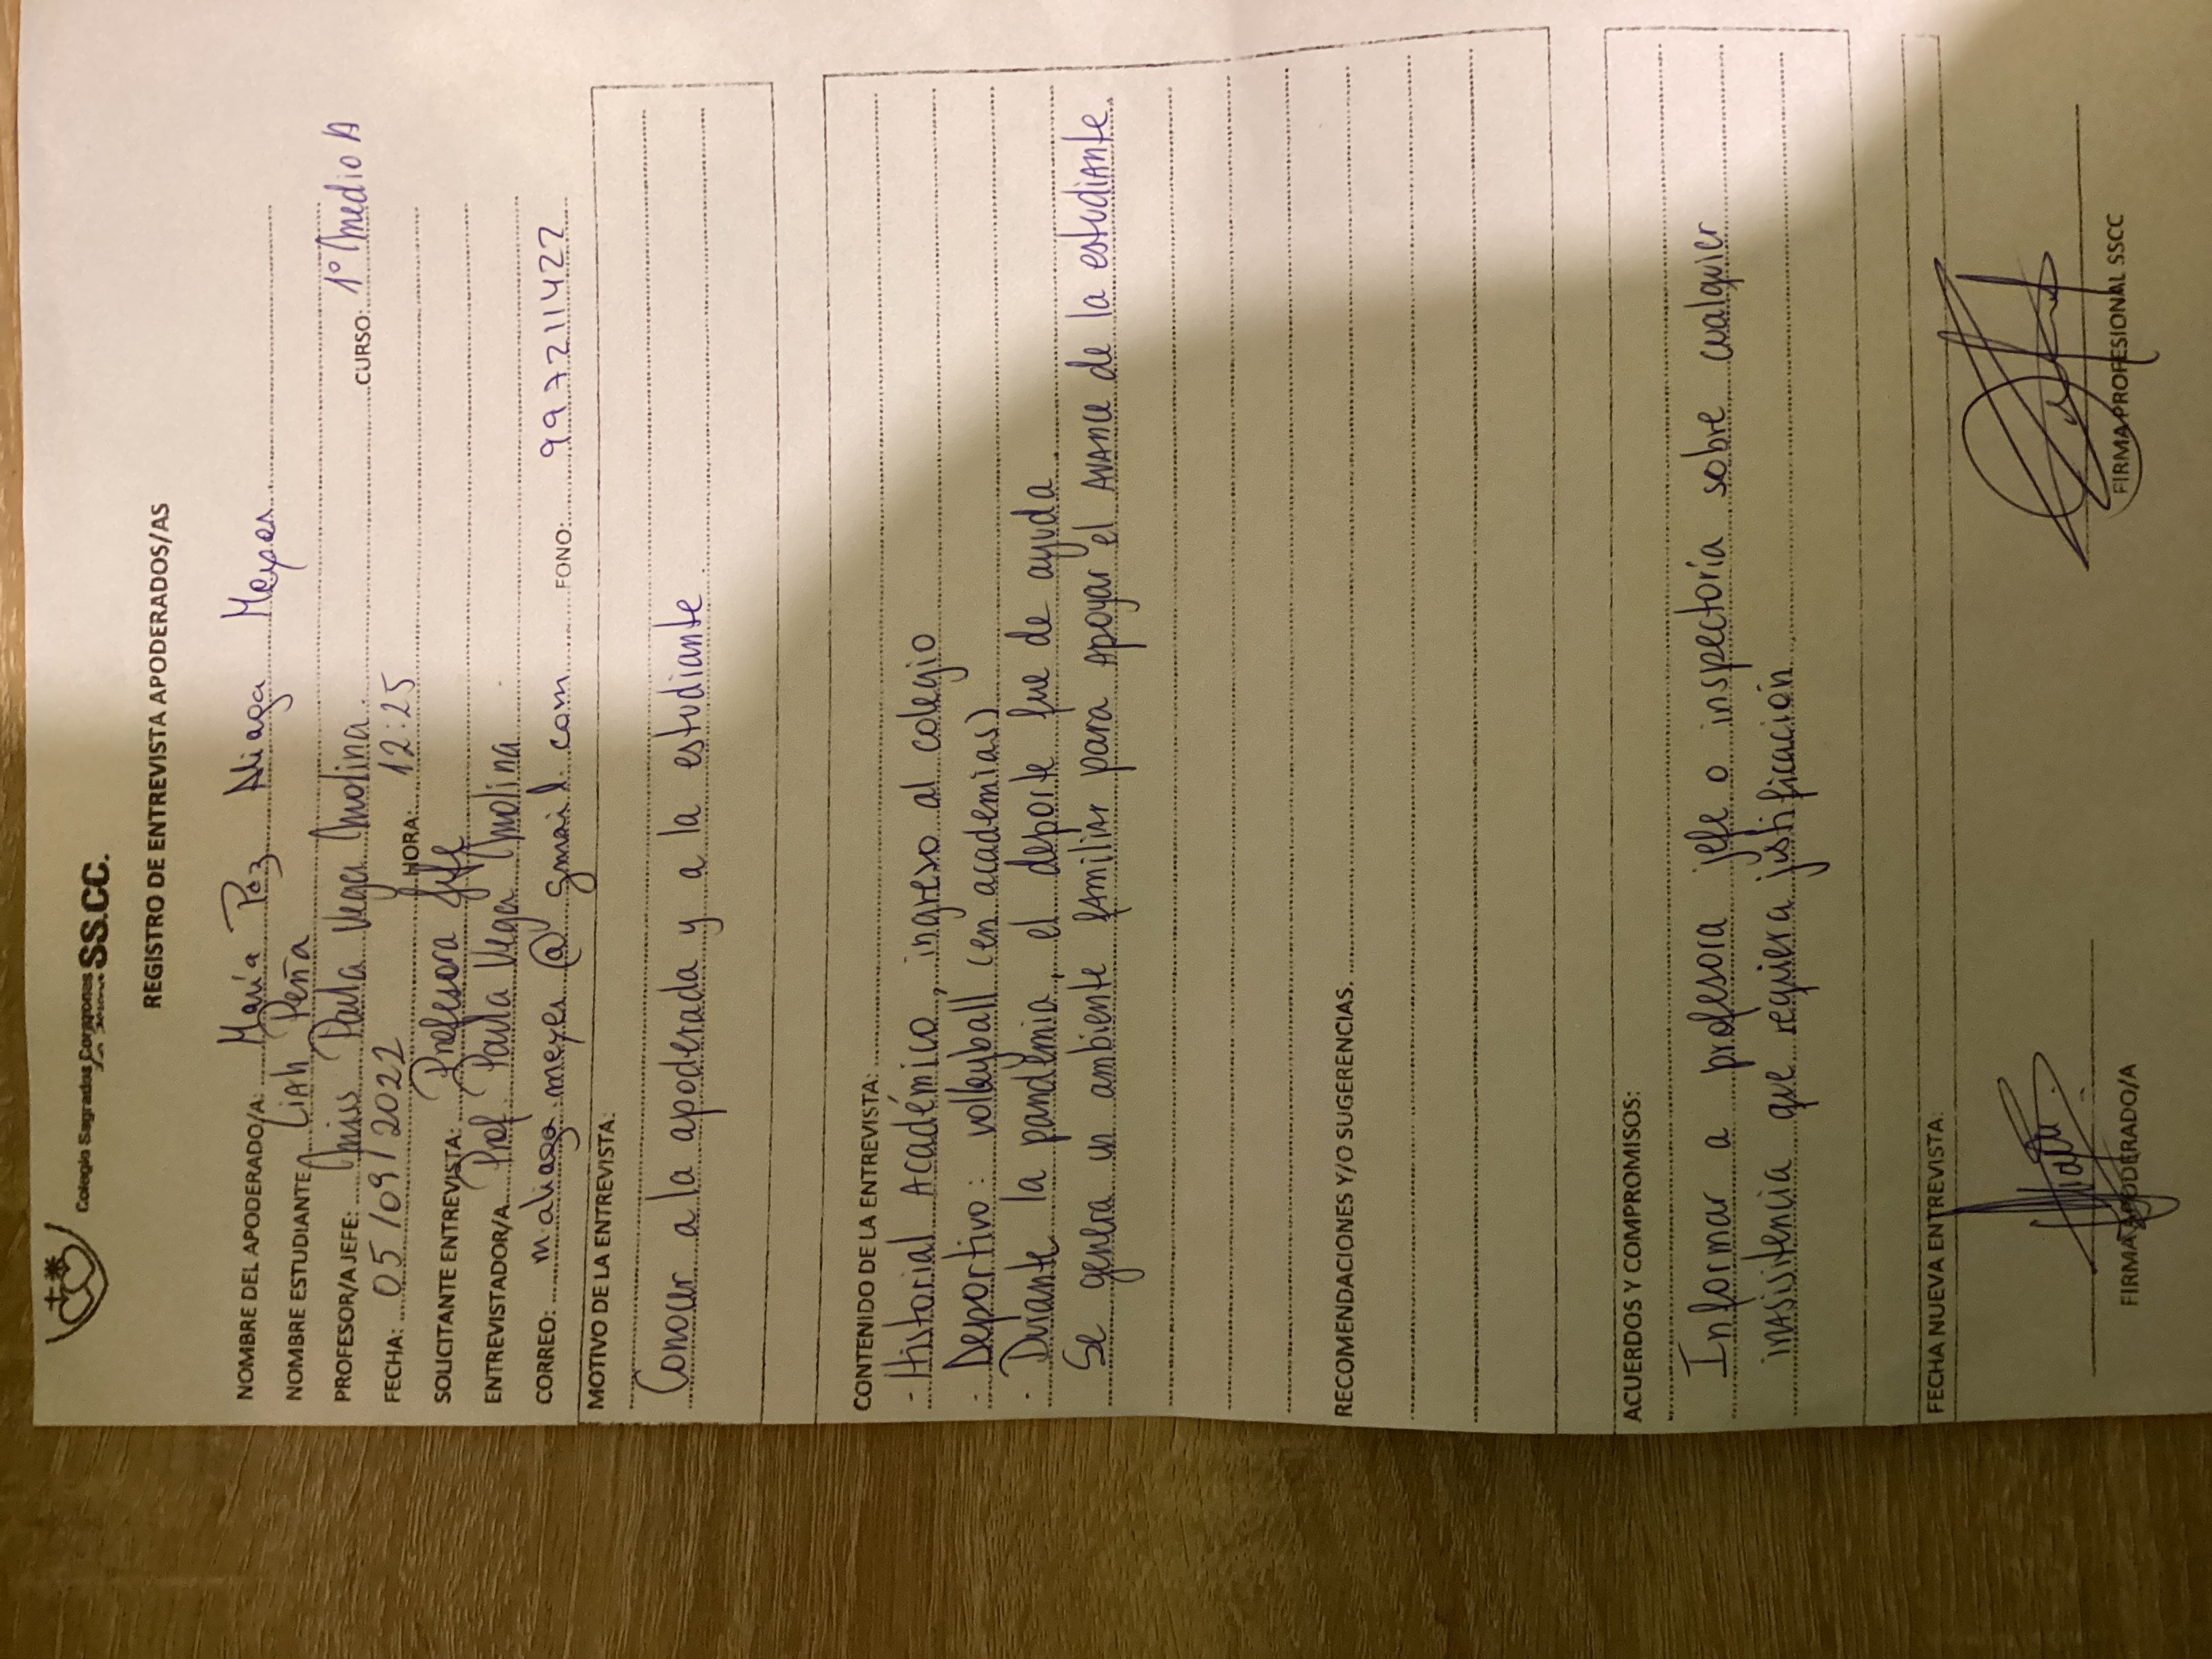 Colegio Sagrados Corazones SS.CC.
REGISTRO DE ENTREVISTA APODERADOS/AS
NOMBRE DEL APODERADO/A: María Paz Aliaga Meyer
NOMBRE ESTUDIANTE Liah Peña
PROFESOR/A JEFE: Miss Paula Vega Molina CURSO: 1° Medio A
FECHA: 05/09/2022 HORA: 12:25
SOLICITANTE ENTREVISTA: Profesora Jefe
ENTREVISTADOR/A Prof. Paula Vega Molina
CORREO: m.aliaga.meyer@gmail.com FONO: 997211422
MOTIVO DE LA ENTREVISTA:
Conocer a la apoderada y a la estudiante.
CONTENIDO DE LA ENTREVISTA:
- Historial Académico, ingreso al colegio
- Deportivo: volleyball (en academias)
- Durante la pandemia, el deporte fue de ayuda
Se genera un ambiente familiar para apoyar el avance de la estudiante.
RECOMENDACIONES Y/O SUGERENCIAS.
ACUERDOS Y COMPROMISOS:
Informar a profesora jefe o inspectoría sobre cualquier
inasistencia que requiera justificación
FECHA NUEVA ENTREVISTA:
FIRMA APODERADO/A FIRMA PROFESIONAL SSCC